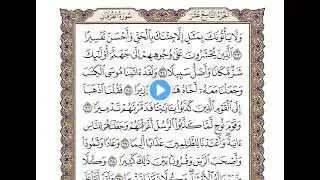 الجزء التاسع عشر
سورة الفرقان
ولا يأتونك بمثل إلا جئناك بالحق وأحسن تفسيرا
الذين يحشرون على وجوههم إلى جهنم أولئك
شر مكانا وأضل سبيلا ولقد ءاتينا موسى الكتب
وجعلنا معه أخاه فقلنا اذهبا
إلى القوم الذين كذبوا بـٔايتنا فدمرنهم تدميرا
وقوم نوح لما كذبوا الرسل أغرقنهم وجعلنهم للناس
ءاية وأعتدنا للظلمين عذابا أليما وعادا وثمودا
وأصحب الرس وقرونا بين ذلك كثيرا وكلا